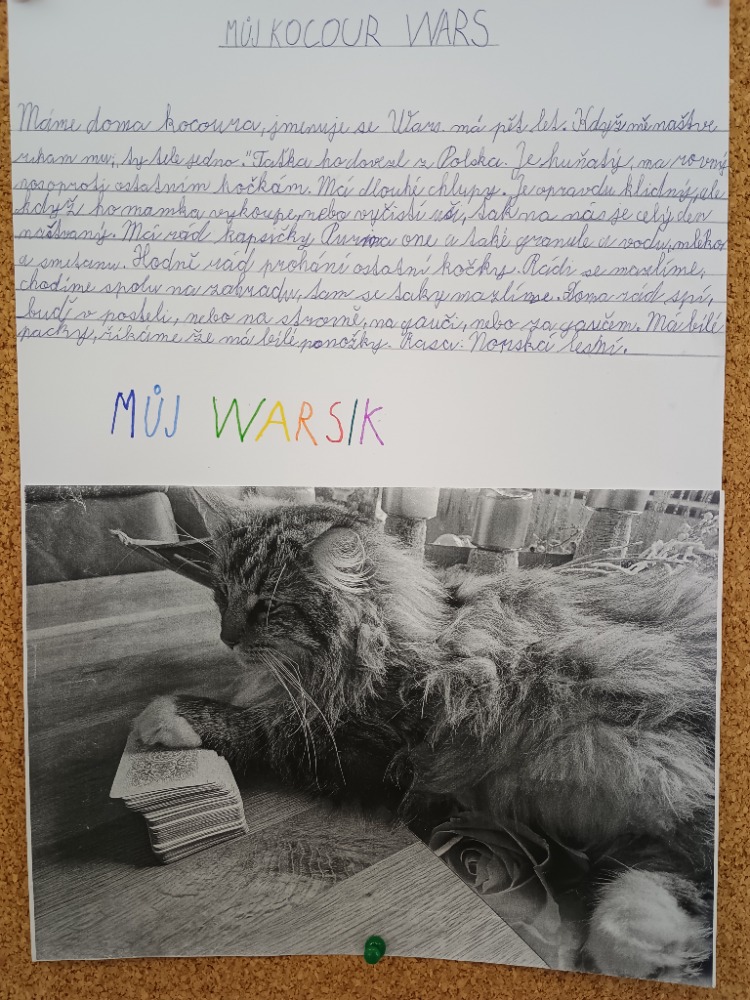 MŮJ KOCOUR WARS
Máme doma kocoura, jmenuje se Wars. má pět let. Když mě naštve
říkam mu,, ty tele jedno." Taťka ho dovezl z Polska. Je huňatý, ma rovný
nos oproti ostatním kočkám. Má dlouhé chlupy. Je opravdu klidný, ale
když ho mamka vykoupe, nebo vyčistí uši, tak na nás je celý den
naštvaný. Má rád kapsičky Purina one a také granule a vodu, mléko
a smetanu. Hodně rád prohání ostatní kočky. Rádi se mazlíme,
chodíme spolu na zahradu, tam se taky mazlíme. Doma rád spí,
buď v posteli, nebo na stromě, na gauči, nebo za gaučem. Má bílé
packy, říkáme že má bílé ponožky. Rasa: Norská lesní.
MŮJ WARSIK